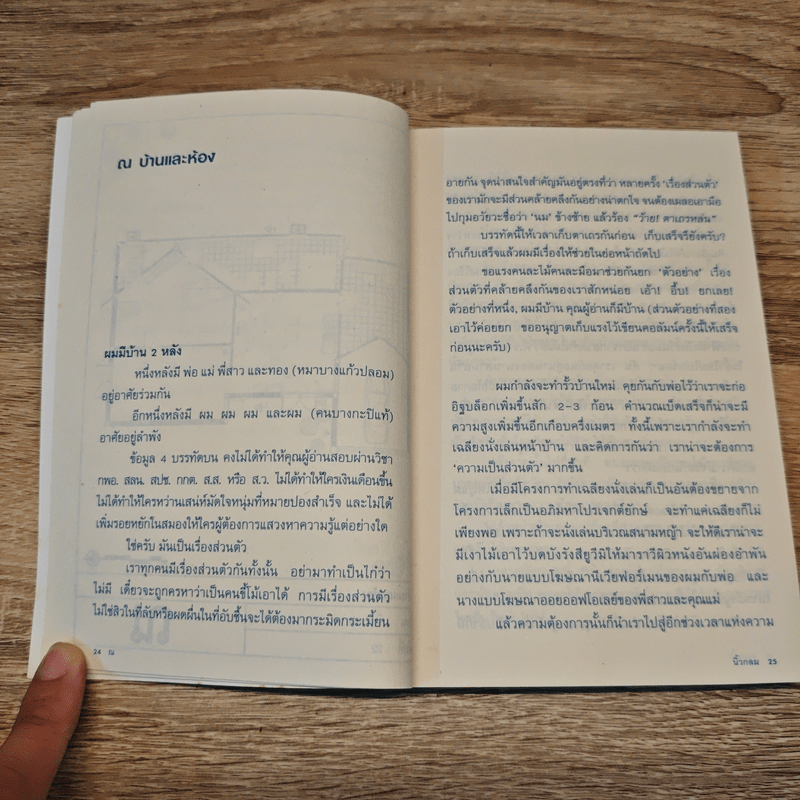 ณ บ้านและห้อง
ผมมีบ้าน 2 หลัง
หนึ่งหลังมี พ่อ แม่ พี่สาว และทอง (หมาบางแก้วปลอม)
อยู่อาศัยร่วมกัน
อีกหนึ่งหลังมี ผม ผม ผม และผม (คนบางกะปิแท้)
อาศัยอยู่ลำพัง
ข้อมูล 4 บรรทัดบน คงไม่ได้ทำให้คุณผู้อ่านสอบผ่านวิชา
กพอ. สลน. สปช. กกต. ส.ส. หรือ ส.ว. ไม่ได้ทำให้ใครเงินเดือนขึ้น
ไม่ได้ทำให้ใครหว่านเสน่ห์มัดใจหนุ่มที่หมายปองสำเร็จ และไม่ได้
เพิ่มรอยหยักในสมองให้ใครผู้ต้องการแสวงหาความรู้แต่อย่างใด
ใช่ครับ มันเป็นเรื่องส่วนตัว
เราทุกคนมีเรื่องส่วนตัวกันทั้งนั้น อย่ามาทำเป็นไก๋ว่า
ไม่มี เดี๋ยวจะถูกครหาว่าเป็นคนขี้ไม้เอาได้ การมีเรื่องส่วนตัว
ไม่ใช่สิวในที่ลับหรือผดผื่นในที่อับชื้นจะได้ต้องมากระมิดกระเมี้ยน
24 ณ
อายกัน จุดน่าสนใจสำคัญมันอยู่ตรงที่ว่า หลายครั้ง ‘เรื่องส่วนตัว’
ของเรามักจะมีส่วนคล้ายคลึงกันอย่างน่าตกใจ จนต้องเผลอเอามือ
ไปกุมอวัยวะชื่อว่า ‘นม’ ข้างซ้าย แล้วร้อง “ว้าย! ตาเถรหล่น”
บรรทัดนี้ให้เวลาเก็บตาเถรกันก่อน เก็บเสร็จรึยังครับ?
ถ้าเก็บเสร็จแล้วผมมีเรื่องให้ช่วยในย่อหน้าถัดไป
ขอแรงคนละไม้คนละมือมาช่วยกันยก ‘ตัวอย่าง’ เรื่อง
ส่วนตัวที่คล้ายคลึงกันของเราสักหน่อย เอ้า! อึ้บ! ยกเลย!
ตัวอย่างที่หนึ่ง, ผมมีบ้าน คุณผู้อ่านก็มีบ้าน (ส่วนตัวอย่างที่สอง
เอาไว้ค่อยยก ขออนุญาตเก็บแรงไว้เขียนคอลัมน์ครั้งนี้ให้เสร็จ
ก่อนนะครับ)
ผมกำลังจะทำรั้วบ้านใหม่ คุยกันกับพ่อไว้ว่าเราจะก่อ
อิฐบล็อกเพิ่มขึ้นสัก 2-3 ก้อน คำนวณเบ็ดเสร็จก็น่าจะมี
ความสูงเพิ่มขึ้นอีกเกือบครึ่งเมตร ทั้งนี้เพราะเรากำลังจะทำ
เฉลียงนั่งเล่นหน้าบ้าน และคิดการกันว่า เราน่าจะต้องการ
‘ความเป็นส่วนตัว’ มากขึ้น
เมื่อมีโครงการทำเฉลียงนั่งเล่นก็เป็นอันต้องขยายจาก
โครงการเล็กเป็นอภิมหาโปรเจกต์ยักษ์ จะทำแค่เฉลียงก็ไม่
เพียงพอ เพราะถ้าจะนั่งเล่นบริเวณสนามหญ้า จะให้ดีเราน่าจะ
มีเงาไม้เอาไว้บดบังรังสียูวีมิให้มาราวีผิวหนังอันผ่องอำพัน
อย่างกับนายแบบโฆษณานีเวียฟอร์เมนของผมกับพ่อ และ
นางแบบโฆษณาออยออฟโอเลย์ของพี่สาวและคุณแม่
แล้วความต้องการนั้นก็นำเราไปสู่อีกช่วงเวลาแห่งความ
นิ้วกลม 25